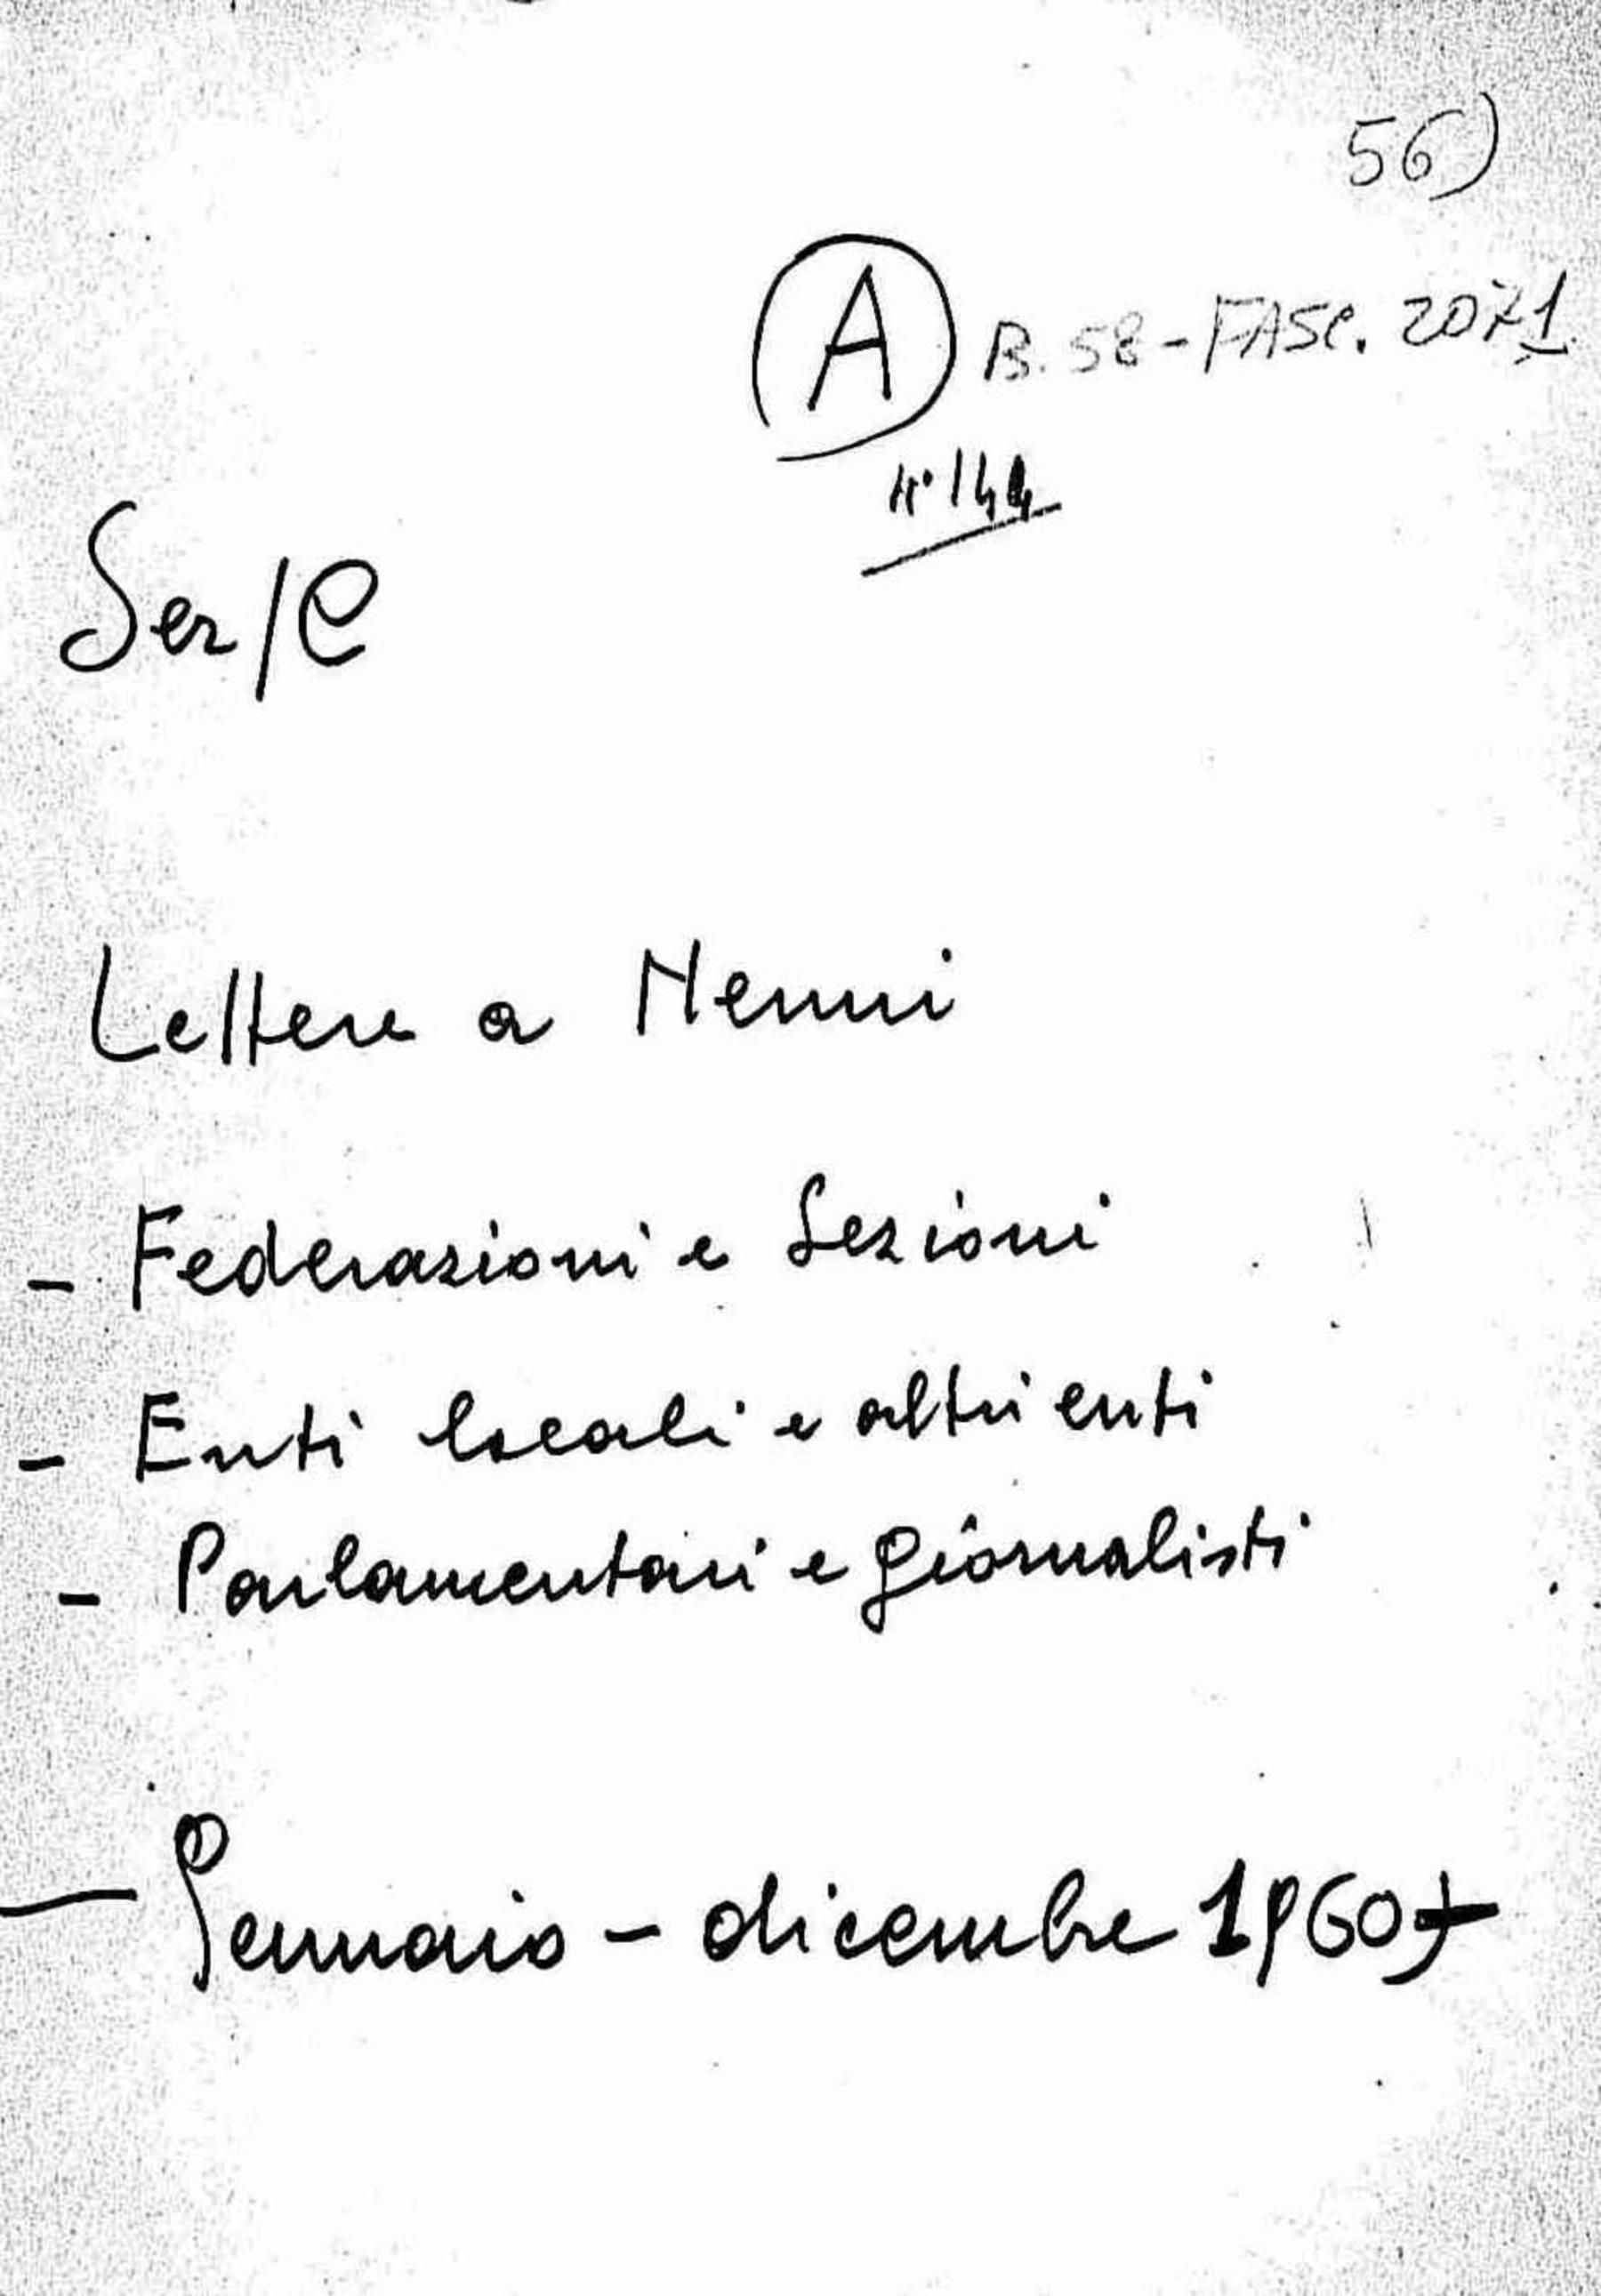 56)
A B. 58 - FASC. 2071
n° 144
Ser/C
Lettere a Nenni
- Federazioni e Sezioni
- Enti locali e altri enti
- Parlamentari e giornalisti
- Gennaio - dicembre 1960